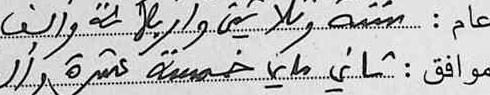 عام : ستة وثلاثين واربعمائة والف
موافق : ثماني ماي خمسة عشرة